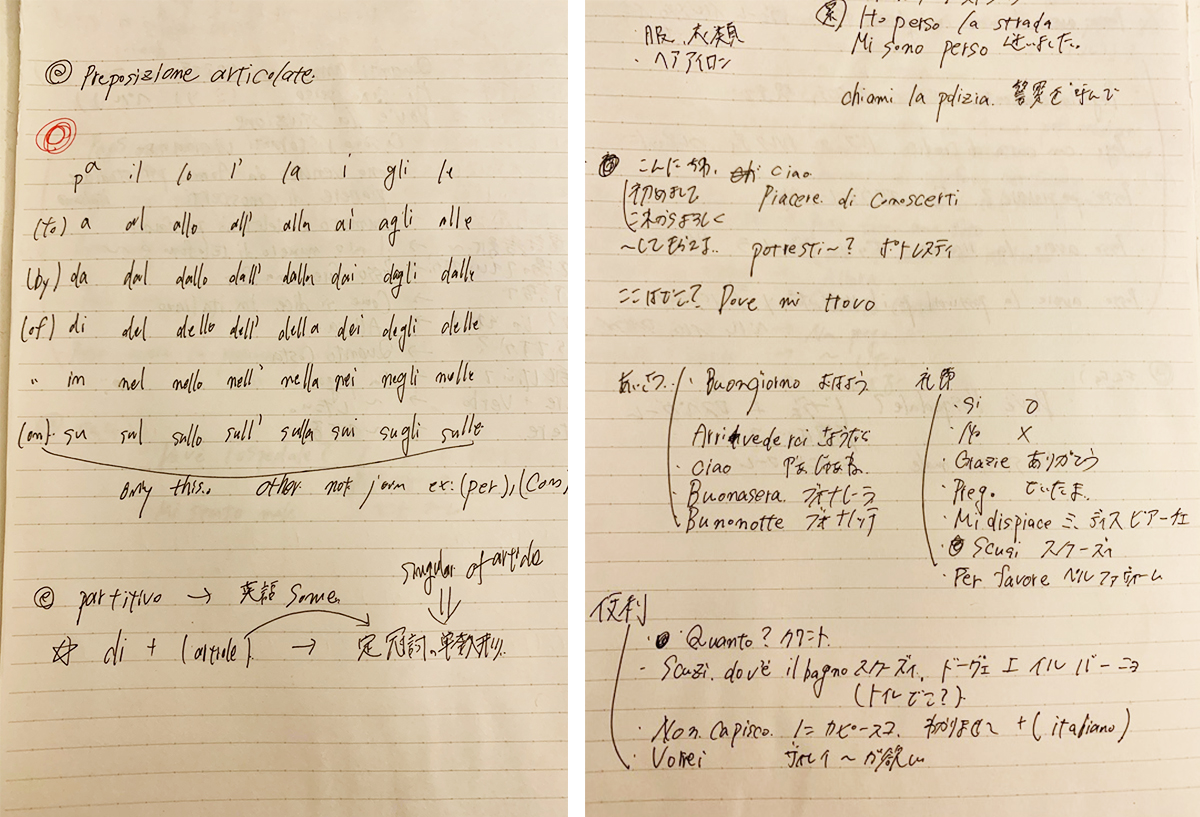 Preposizione articolate.
pa il lo l' la i gli le
(to) a al allo all' alla ai agli alle
(by) da dal dallo dall' dalla dai dagli dalle
(of) di del dello dell' della dei degli delle
" in nel nello nell' nella nei negli nelle
(on). su sul sullo sull' sulla sui sugli sulle
only this.. other not join ex: (per), (Con)
singular of article
partitivo → 英語 Some.
☆ di + (article) → 定冠詞の単数形
Ho perso la strada
服、衣類 Mi sono perso 迷いました。
・ヘアアイロン
chiami la polizia. 警察を呼んで
こんにちわ, ciao
初めまして Piacere. di conoscerti
これからよろしく
〜してもらえる.. potresti〜? ポトレスティ
ここはどこ? Dove mi trovo
あいさつ.. ・Buongiorno おはよう 礼節
・Si O
Arrivederci さようなら ・No X
・Ciao じゃあね. ・Grazie ありがとう
・Buonasera. ブオナセーラ ・Preg.
・Buonanotte ブオナノッテ ・Mi dispiace ミ、ディスピアーチェ
・Scusi スクーズィ
・Per favore ペルファヴォーレ
便利
・Quanto? クワント.
・Scuzi, dov'e il bagno スクーズィ, ドーヴェ エ イル バーニョ
(トイレどこ?)
・Non Capisco. ノン カピースコ. わかりません +(italiano)
・Vorrei ヴォレイ 〜が欲しい